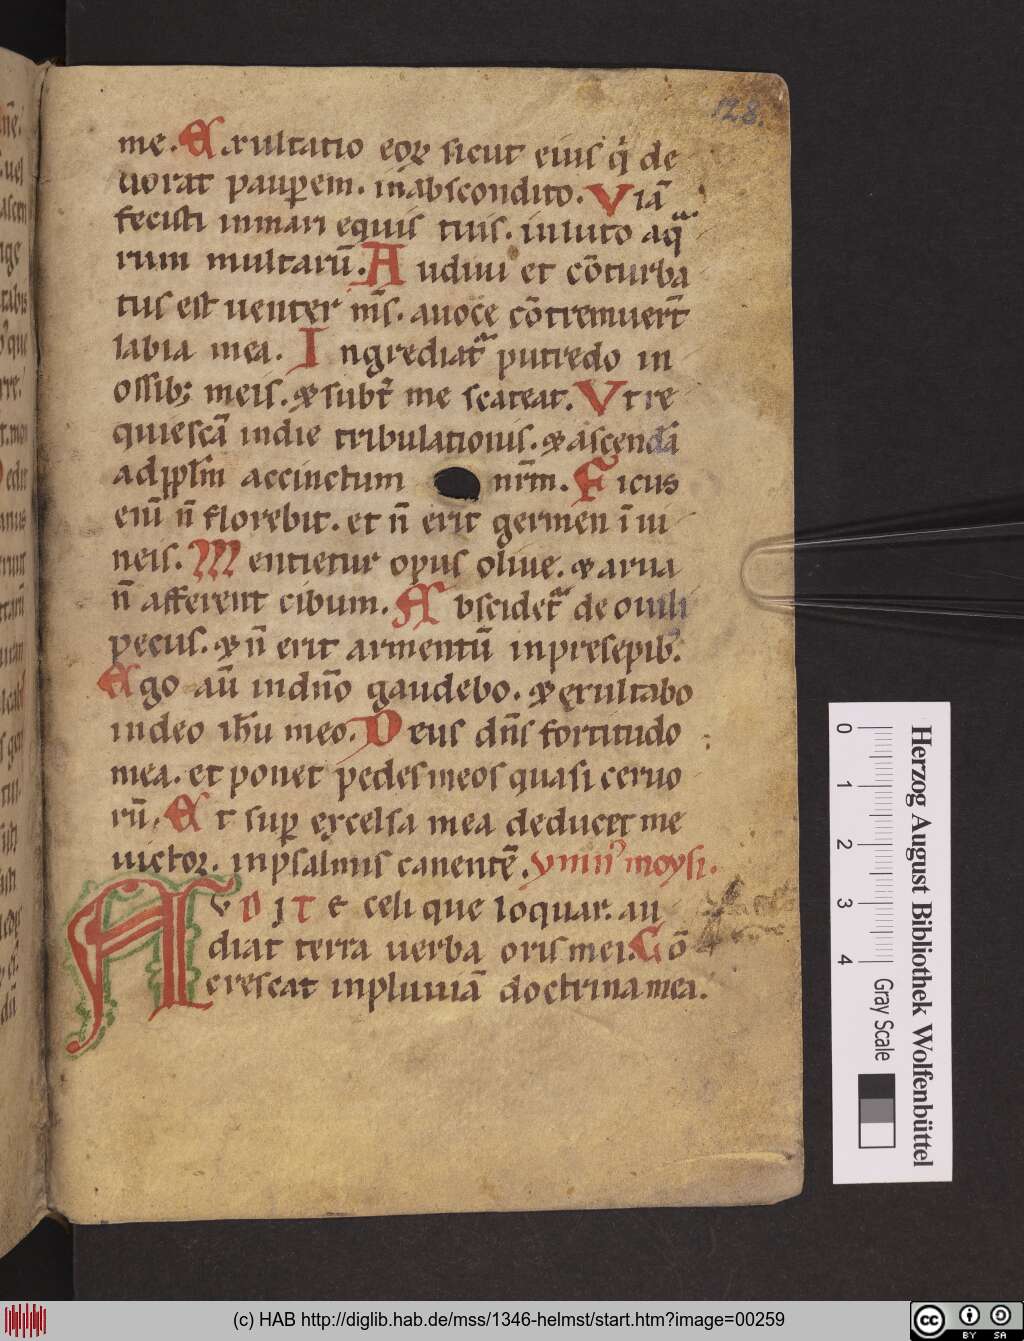 128.
me. Exultatio eoꝝ sicut eius q̇ de
uorat paup̲em. inabscondito. Viā
fecisti inmari equis tuis. inluto aq̄
rum multarū. Audiui et cōturba
tus est uenter m̄s. auoce cōtremuer̄t
labia mea. Ingrediat᷑ putredo in
ossib; meis. ⁊ subt᷑ me scateat. Vt re
quiescā indie tribulationis. ⁊ ascendā
adpp̲l̄m accinctum nr̄m. Ficus
enī n̄ florebit. et n̄ erit germen ī ui
neis. Mentietur opus oliue. ⁊ arua
n̄ afferent cibum. Abscidet᷑ de ouili
pecus. ⁊ n̄ erit armentū inpresepib.
Ego aū indn̄o gaudebo. ⁊ exultabo
indeo ih̄u meo. Deus dn̄s fortitudo
mea. et ponet pedes meos quasi ceruo
rū. Et sup̲ excelsa mea deducet me
uictoꝝ. inpsalmis canentē. ymn᷒ moysi.
AVDITE celi que loquar. au
diat terra uerba oris mei. Cō
crescat inpluuiā doctrina mea.
Herzog August Bibliothek Wolfenbüttel
0 1 2 3 4
Gray Scale
(c) HAB http://diglib.hab.de/mss/1346-helmst/start.htm?image=00259
cc BY SA